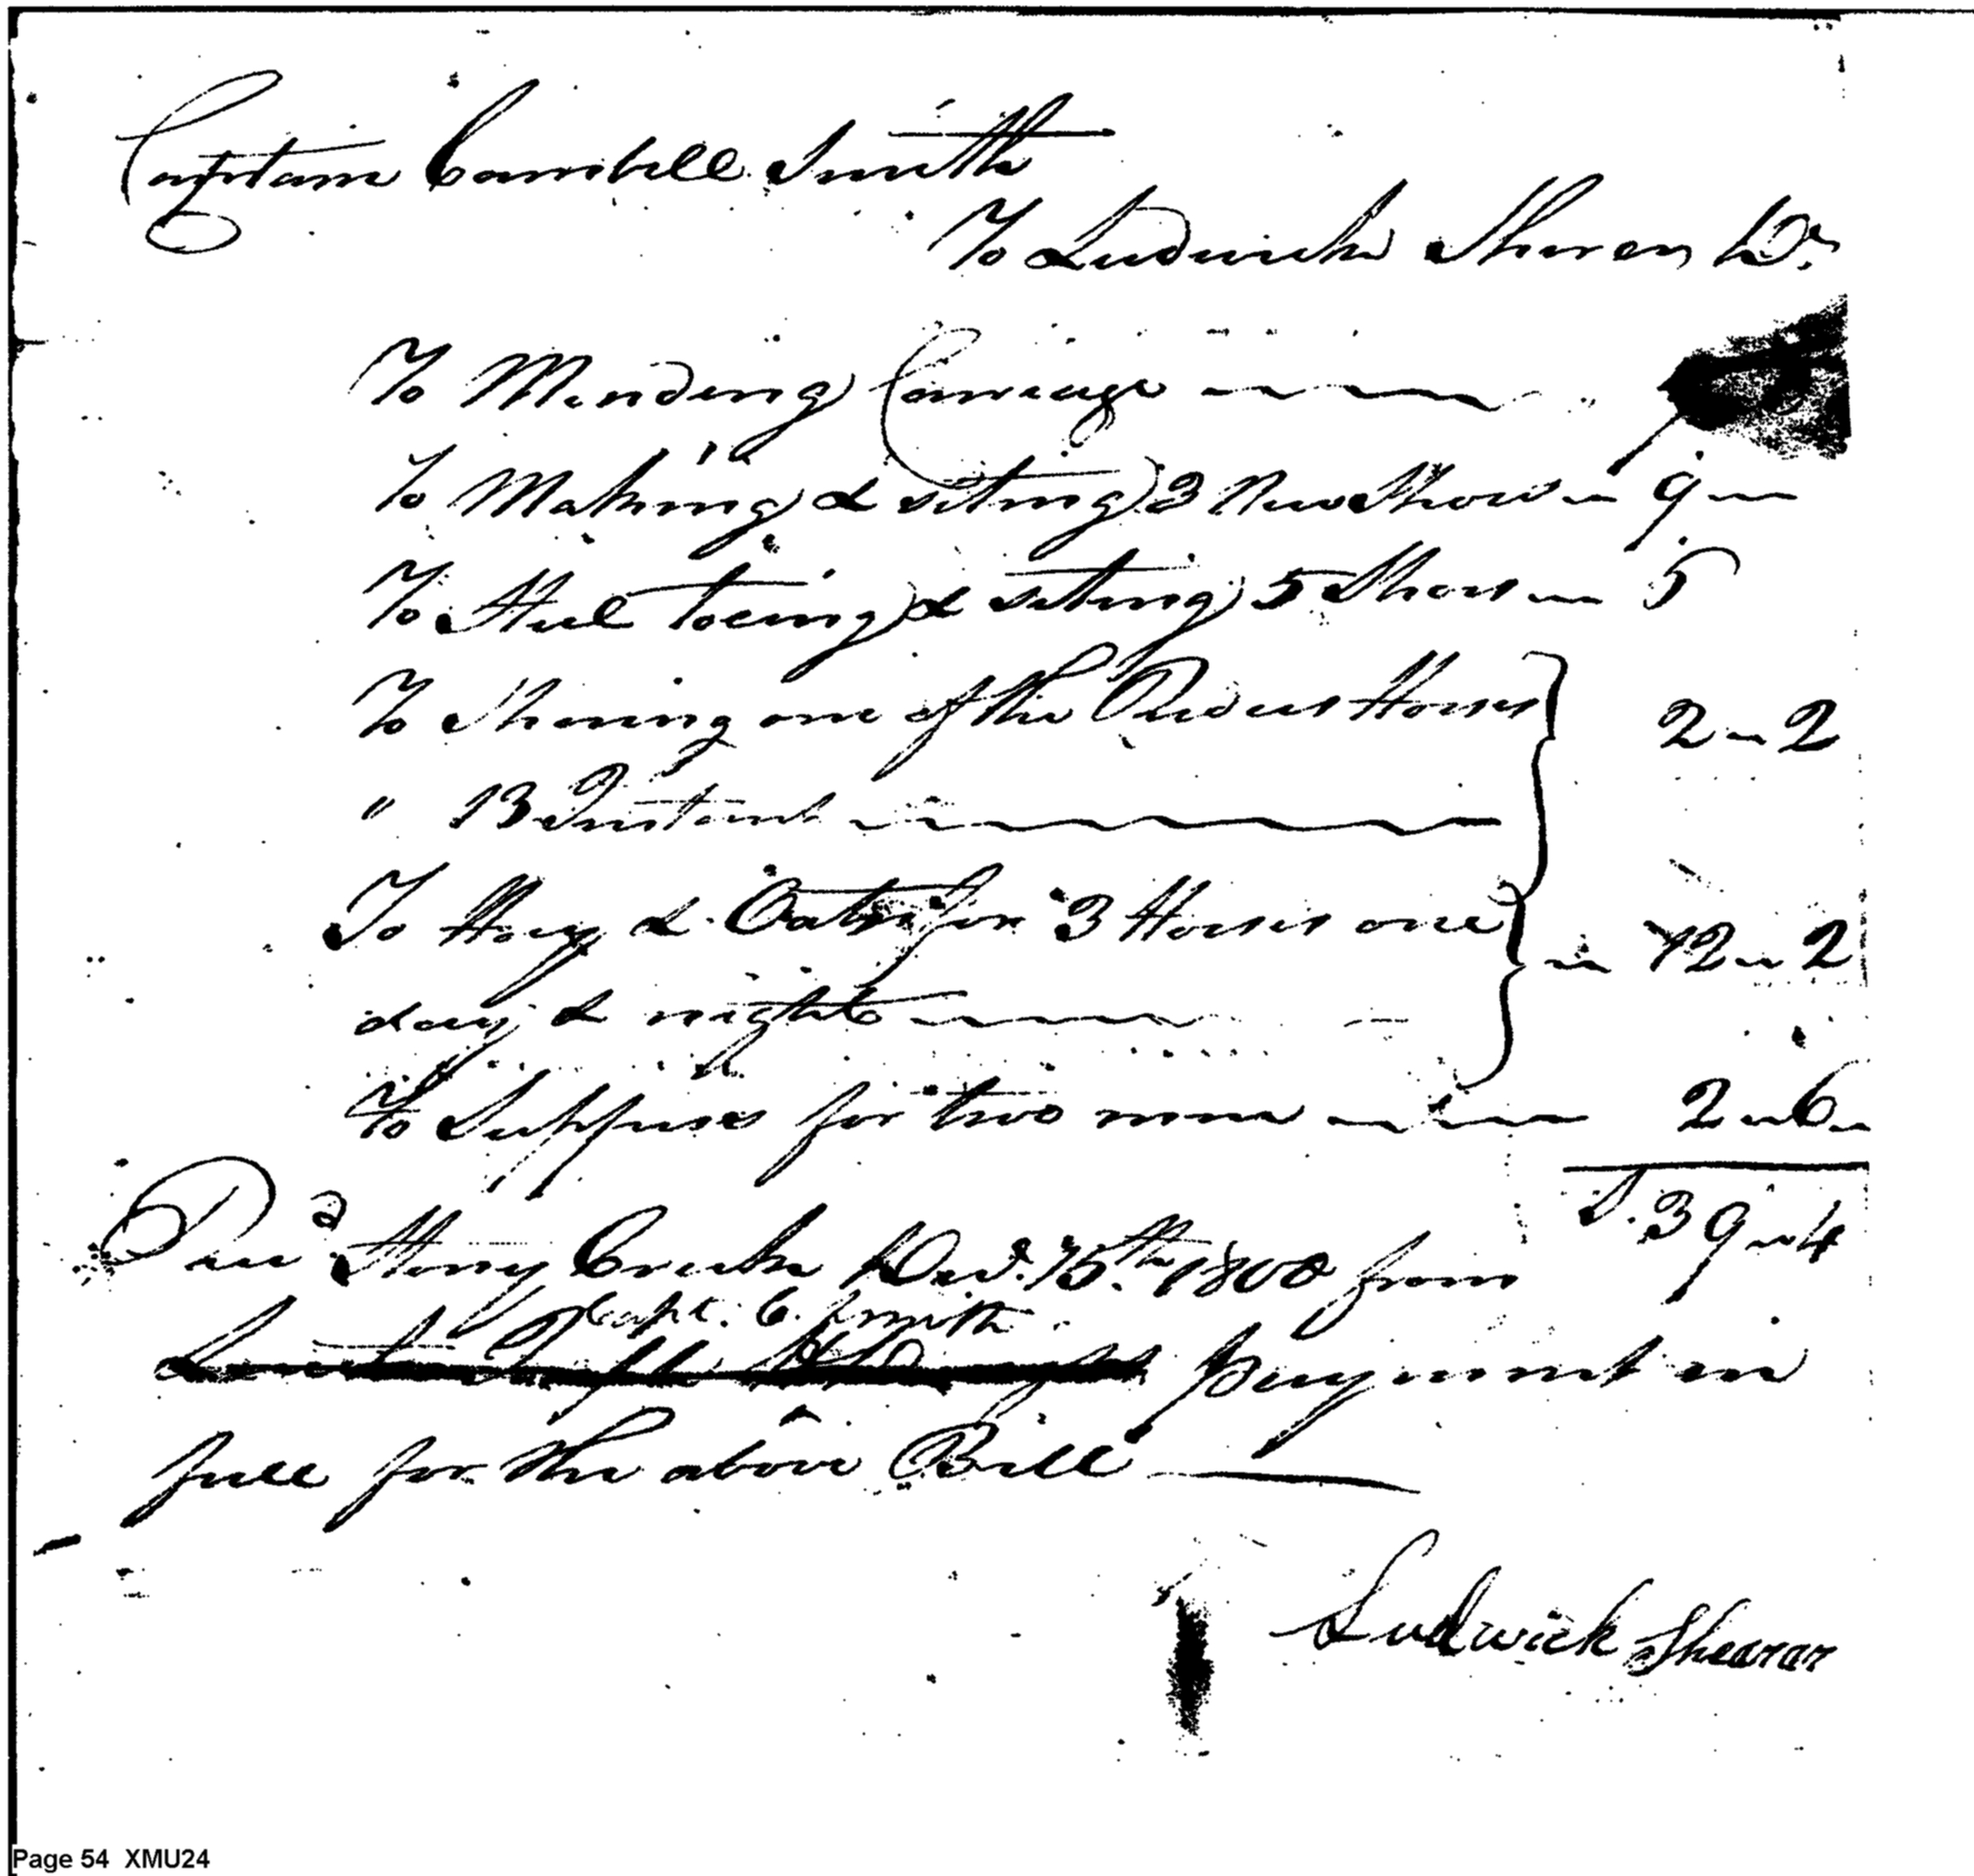 Captain Cambell Smith
To Ludwick Sheren Dr
To Mending Carriage
To Making & seting 3 New Shows 9
To Steel toeing & seting 5 Shoes 5
To Shoeing one of the Horses 2 2
" 13 Instant
To Hay & Oats for 3 Horses one 12 2
day & night
To Suppers for two men 2 6
S. 39 4
Recd Stony Creek Decr. 15th 1800 from
Capt. C. Smith
payment in
full for the above Bill
Ludwick Shearar
Page 54 XMU24